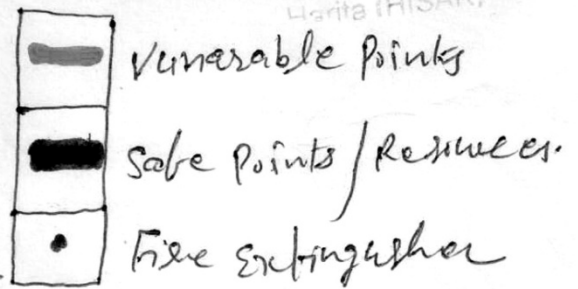 Harita (HISAR)
Vunarable Points
Safe Points / Resources.
Fire Extingusher